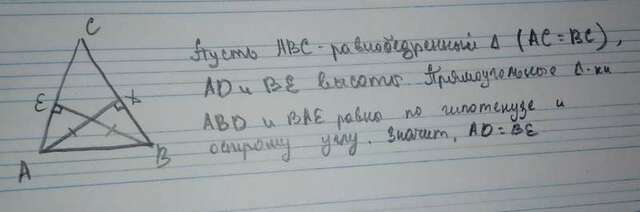 C
E
A
B
Пусть ABC - равнобедренный Δ (AC = BC),
AD и BE высоты Прямоугольные Δ-ки
ABD и BAE равно по гипотенузе и
острому углу. Значит, AD = BE